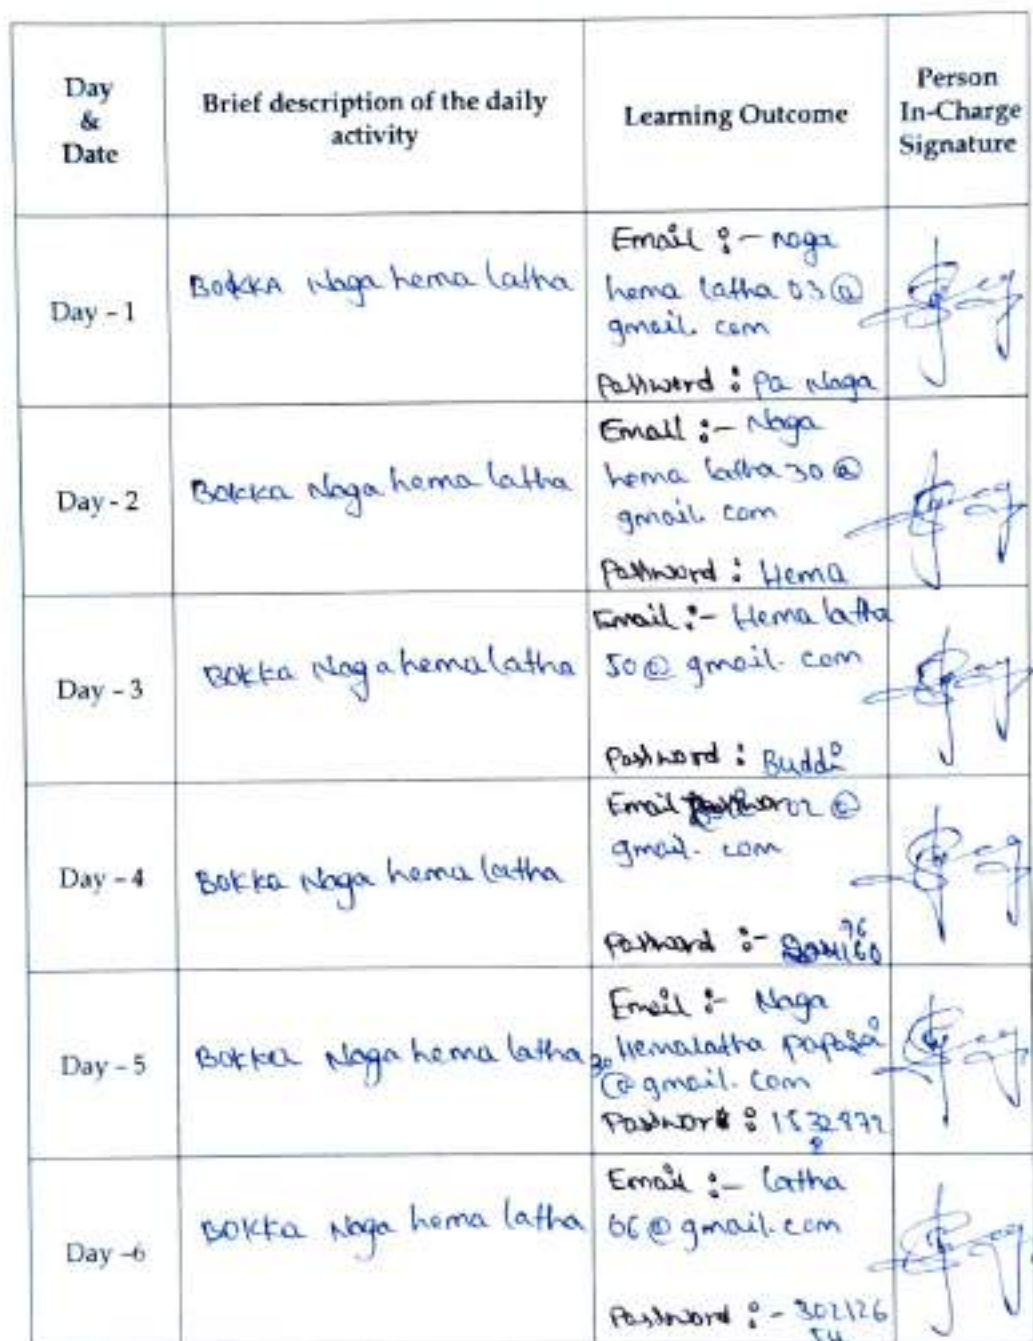 Day
&
Date
Brief description of the daily
activity
Learning Outcome
Person
In-Charge
Signature
Day - 1
BOKKA Naga hema latha
Email :- naga
hema latha 03@
gmail. com
Password : Pa Naga
Day - 2
Bokka Naga hema latha
Email :- Naga
hema latha 30 @
gmail. com
Password : Hema
Day - 3
BOKKa Naga hema latha
Email :- Hema latha
50@ gmail. com
Password : Buddi
Day - 4
BOKKa Naga hema latha
Email 02 @
gmail. com
Password :-
Day - 5
BOKKa Naga hema latha
Email :- Naga
Hemalatha
30 @gmail. com
Password :
Day -6
BOKKa Naga hema latha
Email :- latha
06@gmail.com
Password :- 302126
54